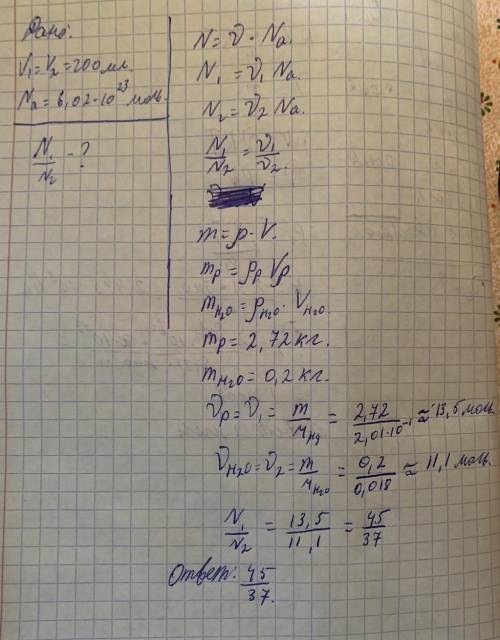 Дано:
V₁=V₂=200мл.
Nа=6,02·10²³ моль.
N₁/N₂ - ?
N=ν·Nа.
N₁=ν₁Nа.
N₂=ν₂Nа.
N₁/N₂=ν₁/ν₂.
m=ρ·V.
mр=ρрVр
mH₂O=ρH₂O·VH₂O.
mр=2,72кг.
mH₂O=0,2кг.
νр=ν₁=m/MHg=2,72/2,01·10⁻¹≈13,5моль
νH₂O=ν₂=m/MH₂O=0,2/0,018≈11,1моль.
N₁/N₂=13,5/11,1=45/37
Ответ: 45/37.